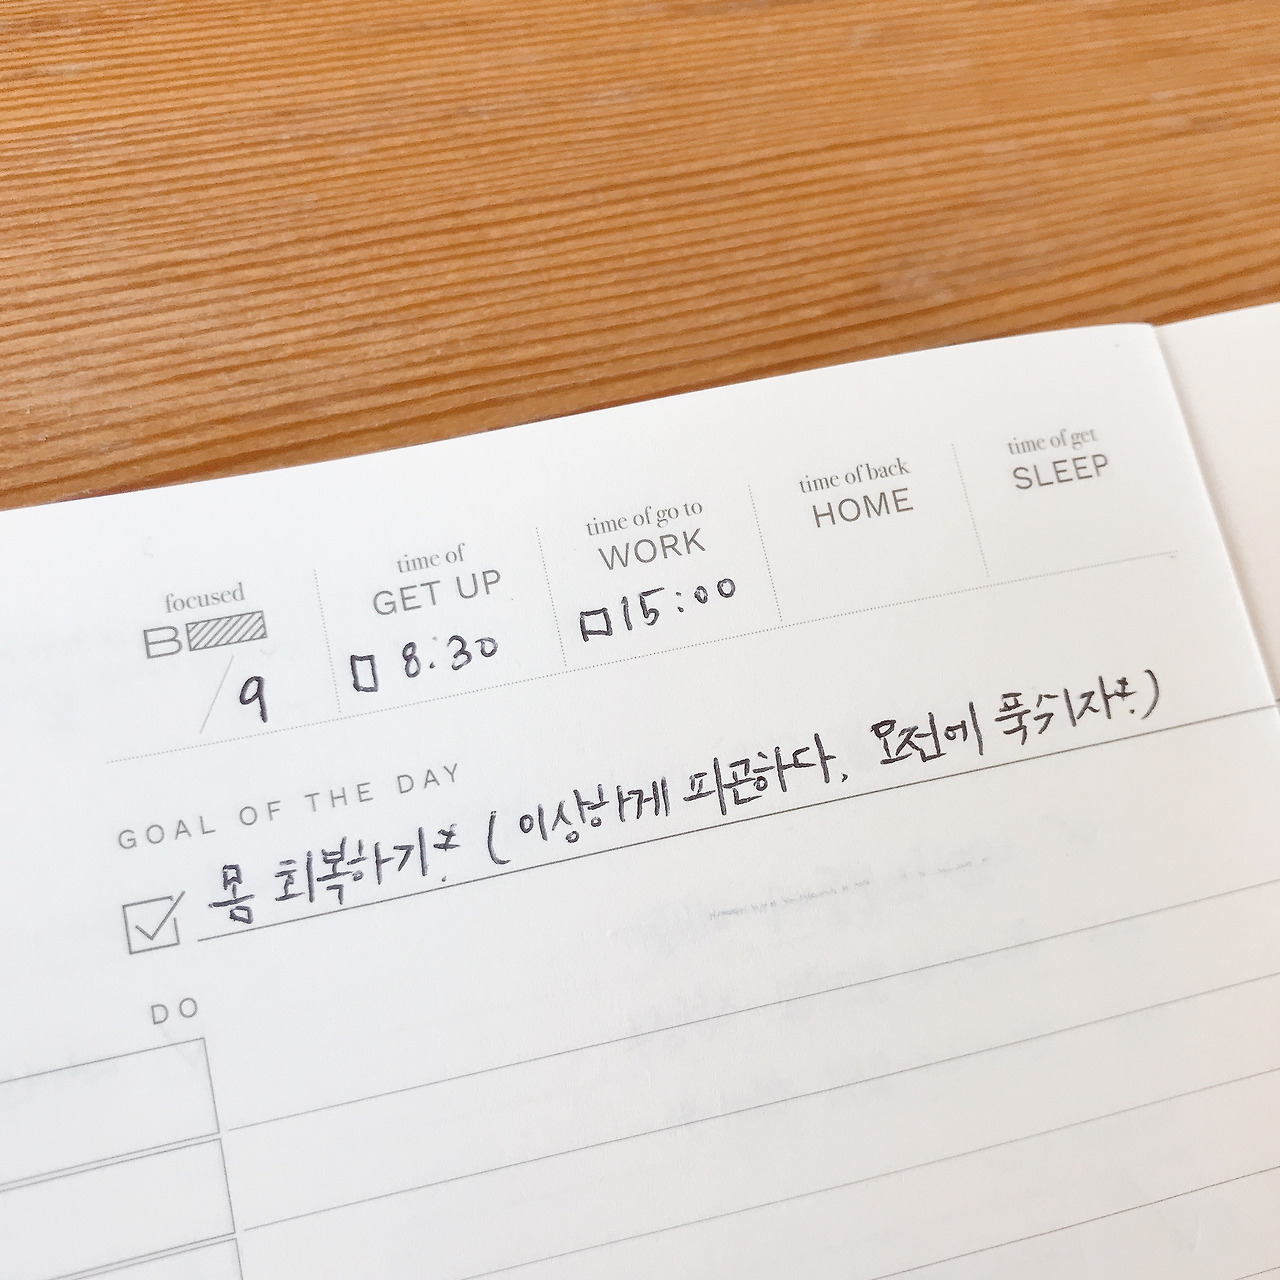 focused
B
/9
time of
GET UP
□ 8:30
time of go to
WORK
□ 15:00
time of back
HOME
time of get
SLEEP
GOAL OF THE DAY
몸 회복하기* ( 이상하게 피곤하다, 오전에 푹쉬자*.)
DO